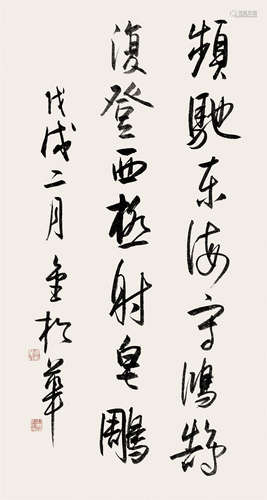 頻馳东海守鴻鵠
復登西極射皂鵰
戊戌二月 金松華